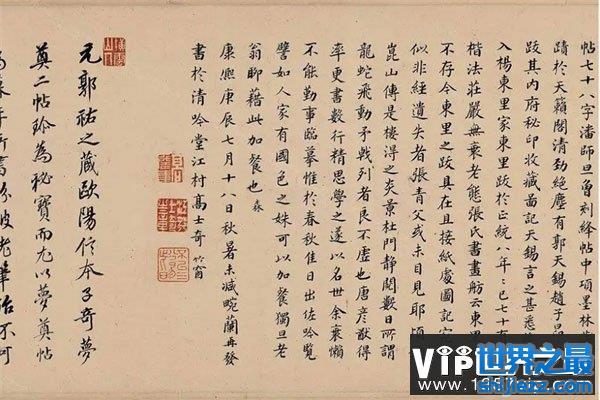 帖七十八字潘師旦曾刻絳帖中項墨林
蹟於天籟閣清勁絕塵有郭天錫趙子昂
跋其內府秘印收藏啚記天錫言之甚悉
入楊東里家東里跋於正統八年已七十
楷法莊嚴無衰老態張氏書畫舫云東里
不存今東里之跋具在且接紙處圖記
似非經遺失者張青父或未目見耶頃
崑山傳是樓得之炎景杜門靜閱數日所謂
龍蛇飛動矛戟列者良不虛也唐彥猷得
率更書數行精思學之遂以名世余衰懶
不能勤事臨摹惟於春秋佳日出佐吟覽
譬如人家有國色之姝可以加餐獨旦老
翁聊藉此加餐也
康熙庚辰七月十八日秋暑未減畹蘭再發
書於清吟堂江村高士奇
元郭祐之藏歐陽信本子奇夢
奠二帖珍為秘寶而尤以夢奠帖
VIP世界之最
shijiezz.com